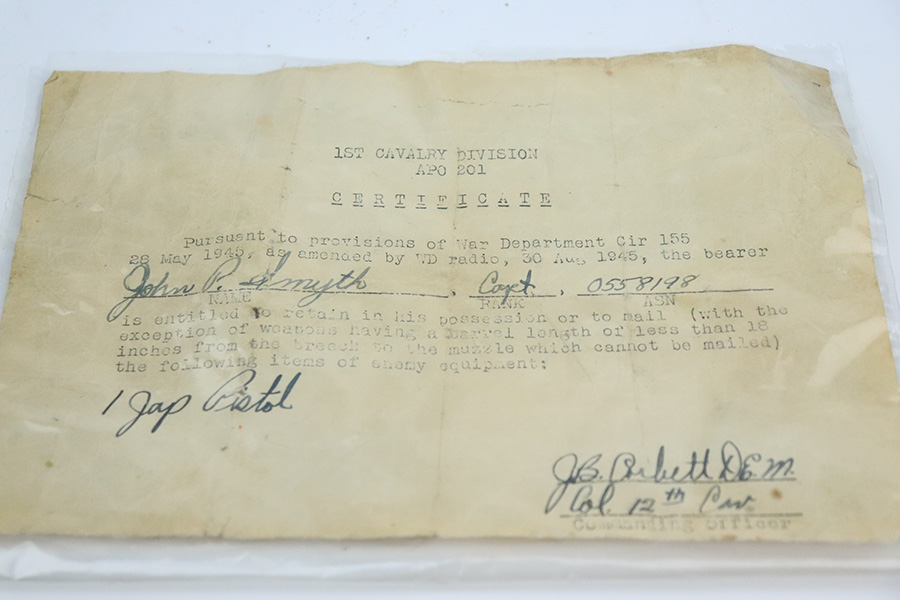 1ST CAVALRY DIVISION
APO 201
CERTIFICATE
Pursuant to provisions of War Department Cir 155
28 May 1945, as amended by WD radio, 30 Aug 1945, the bearer
John P. Smyth, Capt, 0558198
NAME RANK ASN
is entitled to retain in his possession or to mail (with the
exception of weapons having a barrel length of less than 18
inches from the breach to the muzzle which cannot be mailed)
the following items of enemy equipment:
1 Jap Pistol
J.B. Corbett
Col. 12th Cav.
Commanding Officer